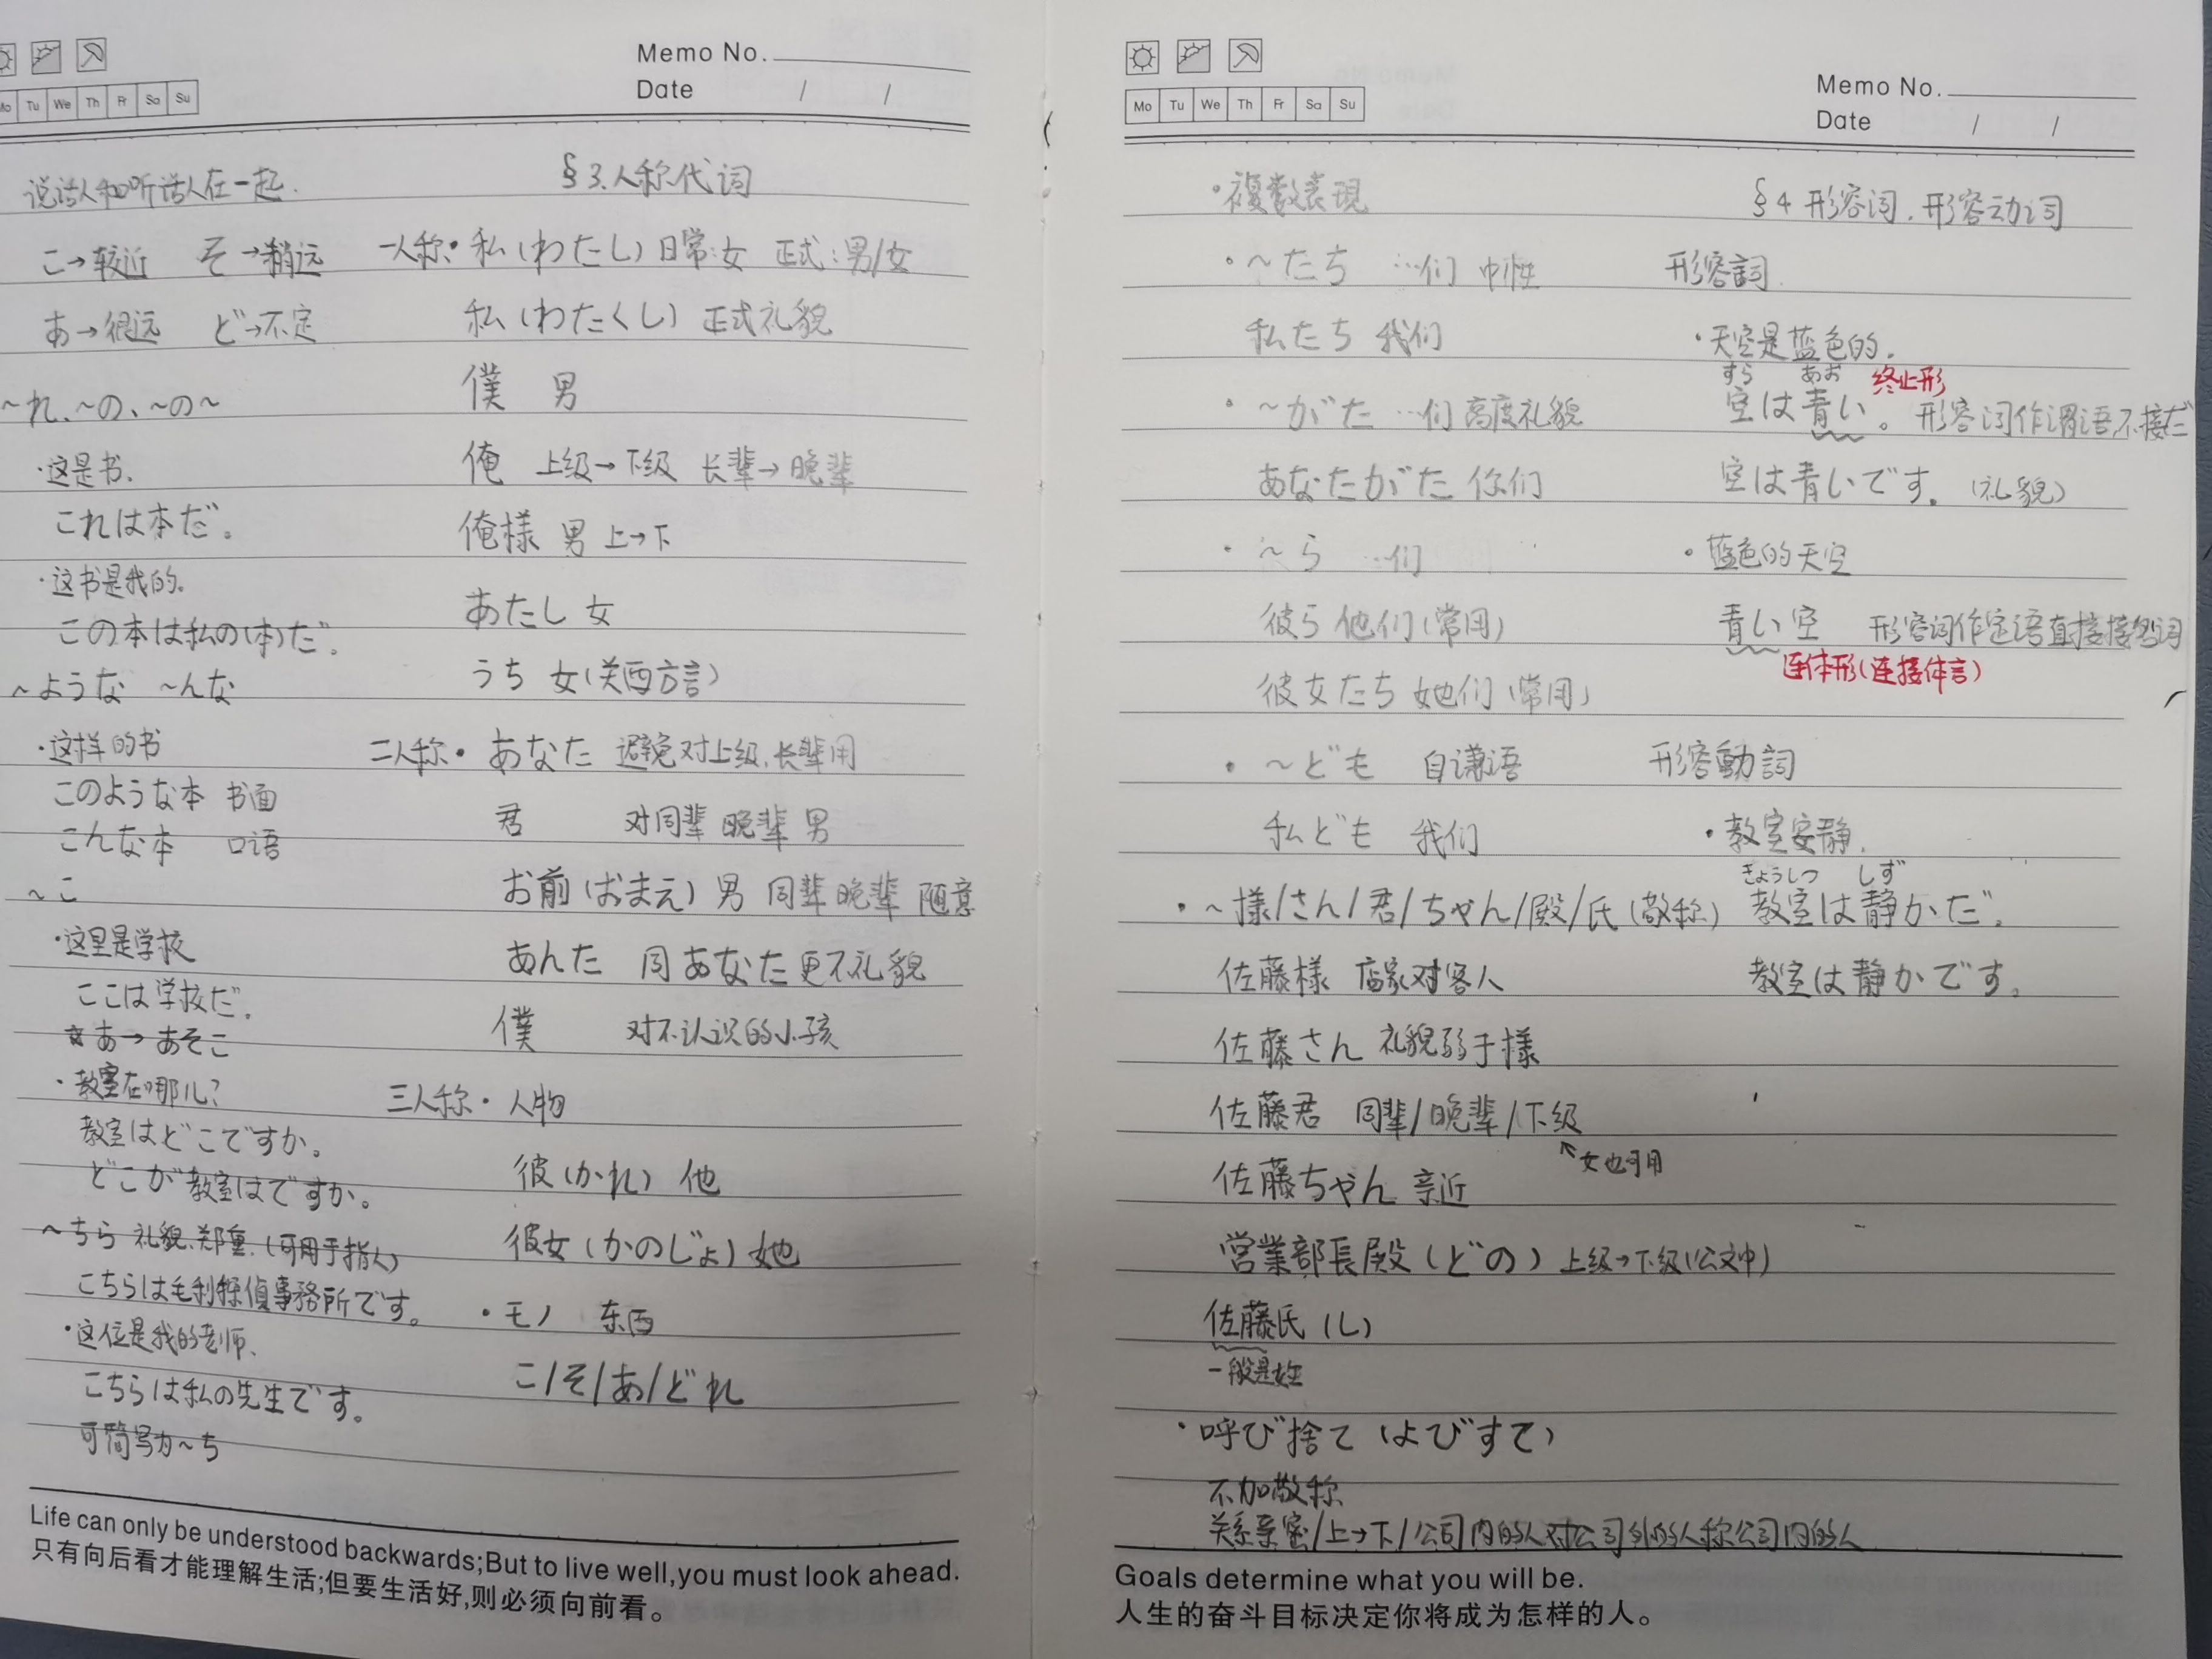 Memo No.
Date / /
Mo Tu We Th Fr Sa Su
说话人和听话人在一起.
こ→较近 そ→稍远
あ→很远 ど→不定
~れ、~の、~の~
·这是书.
これは本だ。
·这书是我的.
この本は私の(本)だ.
~ような ~んな
·这样的书
このような本 书面
こんな本 口语
~こ
·这里是学校
ここは学校だ.
☆あ→あそこ
·教室在哪儿?
教室はどこですか。
どこが教室はですか。
~ちら 礼貌.郑重.(可用于指人)
こちらは毛利探偵事務所です。
·这位是我的老师.
こちらは私の先生です。
可简写为~ち
§3.人称代词
一人称·私(わたし)日常:女 正式:男/女
私(わたくし)正式礼貌
僕 男
俺 上级→下级 长辈→晚辈
俺様 男 上→下
あたし 女
うち 女(关西方言)
二人称·あなた 避免对上级.长辈用
君 对同辈 晚辈 男
お前(おまえ)男 同辈 晚辈 随意
あんた 同あなた更不礼貌
僕 对不认识的小孩
三人称·人物
彼(かれ)他
彼女(かのじょ)她
·モノ 东西
こ/そ/あ/どれ
Life can only be understood backwards;But to live well,you must look ahead.
只有向后看才能理解生活;但要生活好,则必须向前看。
Memo No.
Date / /
Mo Tu We Th Fr Sa Su
·複数表現
·~たち …们 中性
私たち 我们
·~がた …们 高度礼貌
あなたがた 你们
·~ら …们
彼ら 他们(常用)
彼女たち 她们(常用)
·~ども 自谦语
私ども 我们
·~様/さん/君/ちゃん/殿/氏(敬称)
佐藤様 店家对客人
佐藤さん 礼貌弱于様
佐藤君 同辈/晚辈/下级
↖女也可用
佐藤ちゃん 亲近
営業部長殿(どの)上级→下级(公文中)
佐藤氏(し)
一般是姓
·呼び捨て(よびすて)
不加敬称
关系亲密/上→下/公司内的人对公司外的人称公司内的人
§4 形容词.形容动词
形容詞
·天空是蓝色的.
すら あお 终止形
空は青い。形容词作谓语,不接だ
空は青いです.(礼貌)
·蓝色的天空
青い空 形容词作定语直接接名词
连体形(连接体言)
形容動詞
·教室安静.
きょうしつ しず
教室は静かだ.
教室は静かです。
Goals determine what you will be.
人生的奋斗目标决定你将成为怎样的人。